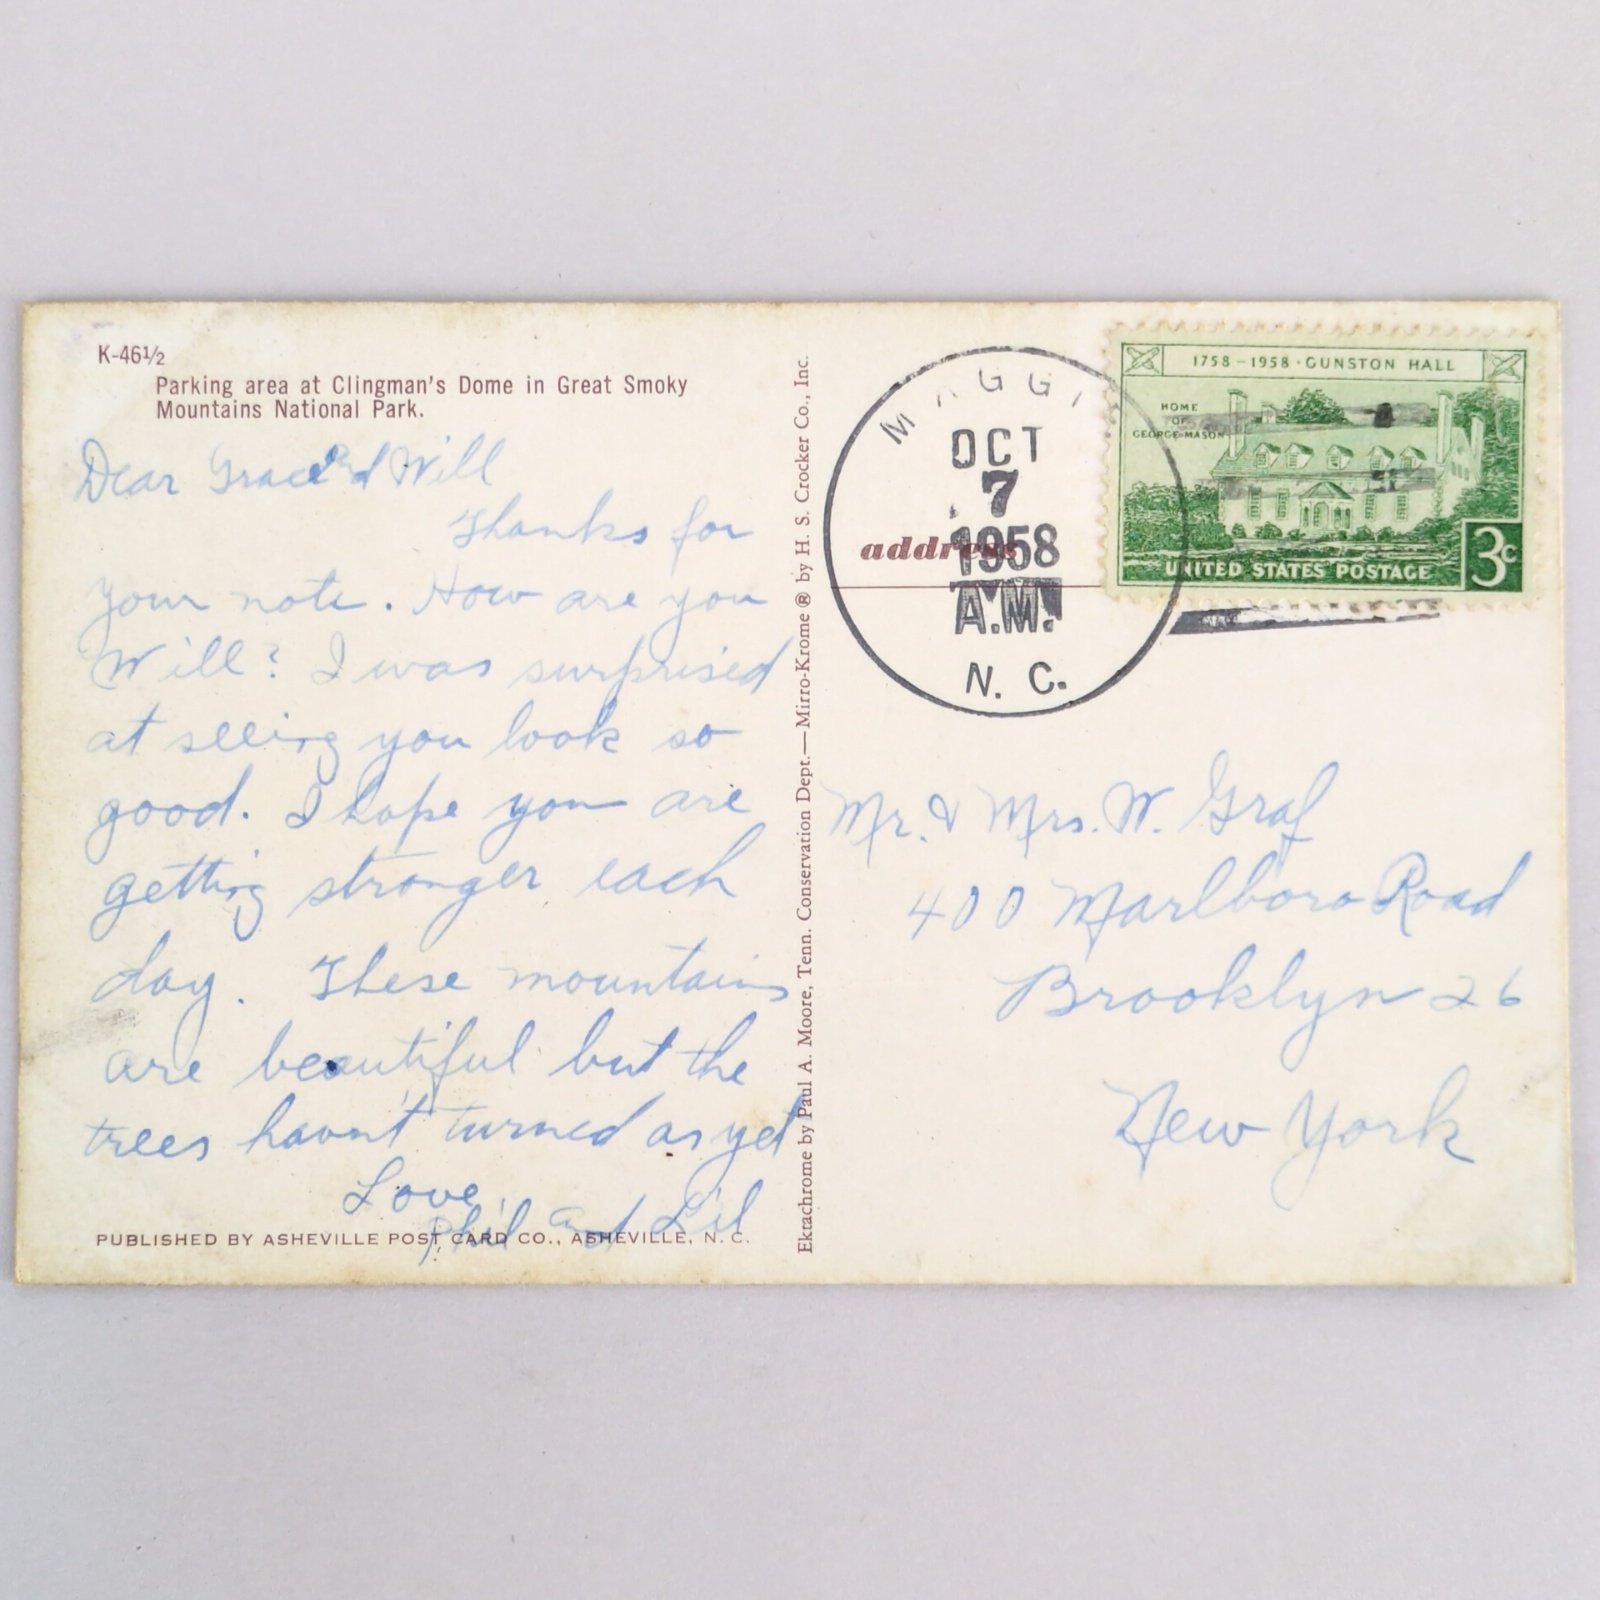 K-46½
Parking area at Clingman's Dome in Great Smoky
Mountains National Park.
Dear Grace and Will
Thanks for
your note. How are you
Will? I was surprised
at seeing you look so
good. I hope you are
getting stronger each
day. These mountains
are beautiful but the
trees havn't turned as yet
Love
Phil and Lil
PUBLISHED BY ASHEVILLE POST CARD CO., ASHEVILLE, N. C.
Ektachrome by Paul A. Moore, Tenn. Conservation Dept.—Mirro-Krome ® by H. S. Crocker Co., Inc.
MAGGI
OCT
7
1958
A.M.
N. C.
address
1758-1958·GUNSTON HALL
HOME
OF
GEORGE MASON
UNITED STATES POSTAGE
3c
Mr. & Mrs. W. Graf
400 Marlboro Road
Brooklyn 26
New York